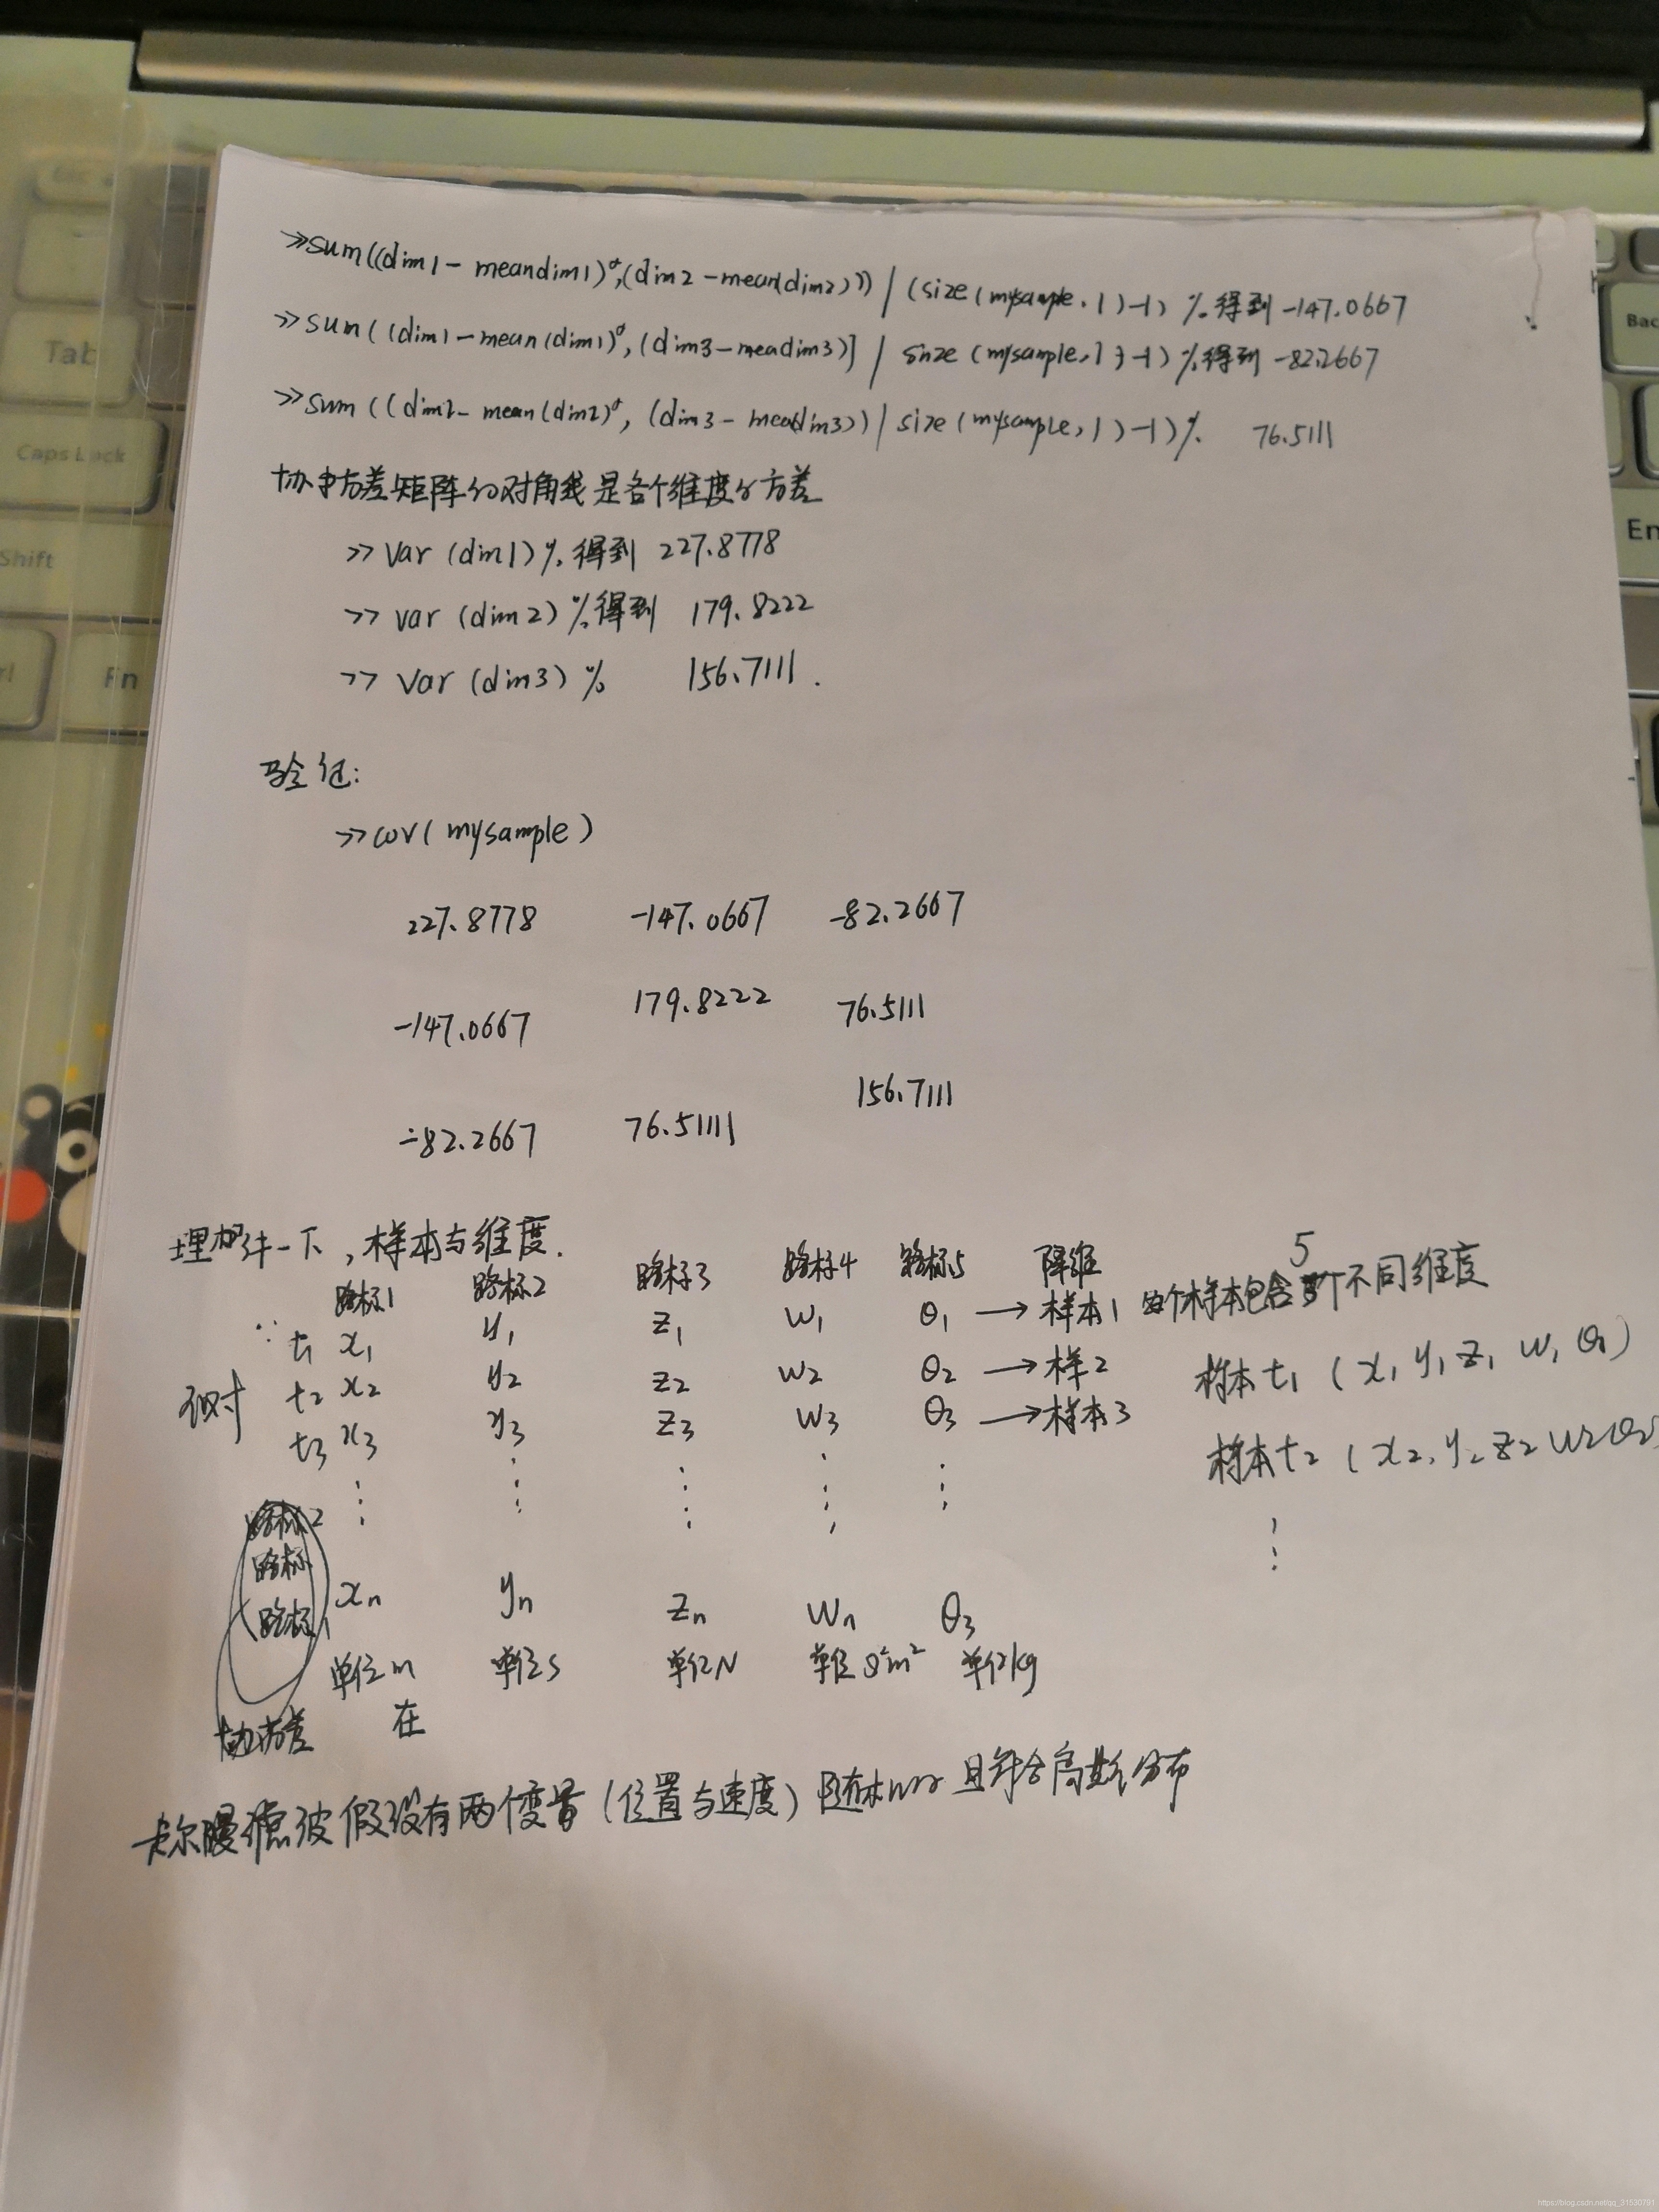 >>sum((dim1-meandim1)°,(dim2-mean(dim2)))/(size(mysample,1)-1) %得到 -147.0667
>>sum((dim1-mean(dim1)°,(dim3-meadim3)]/size(mysample,1)-1) %得到 -82.2667
>>sum((dim2-mean(dim2)°,(dim3-mea(dim3))/size(mysample,1)-1)% 76.5111
协方差矩阵的对角线是各个维度的方差
>>var(dim1)%得到 227.8778
>>var(dim2)%得到 179.8222
>>var(dim3)% 156.7111.
验证:
>>cov(mysample)
227.8778 -147.0667 -82.2667
-147.0667 179.8222 76.5111
-82.2667 76.5111 156.7111
理解一下,样本与维度.
路标1 路标2 路标3 路标4 路标5 降维
t1 x1 y1 z1 w1 θ1 →样本1 每个样本包含5个不同维度
t2 x2 y2 z2 w2 θ2 →样2 样本t1(x1 y1 z1 w1 θ1)
t3 x3 y3 z3 w3 θ3 →样本3 样本t2(x2,y2 z2 w2 θ2
路标2
路标
路标
xn yn zn wn θ3
单位m 单位s 单位N 单位 m² 单位kg
协方差 在
卡尔曼滤波假设有两个变量(位置与速度)随机 且符合高斯分布
Tab
Caps Lock
Shift
Fn
Bac
En
https://blog.csdn.net/qq_31530791